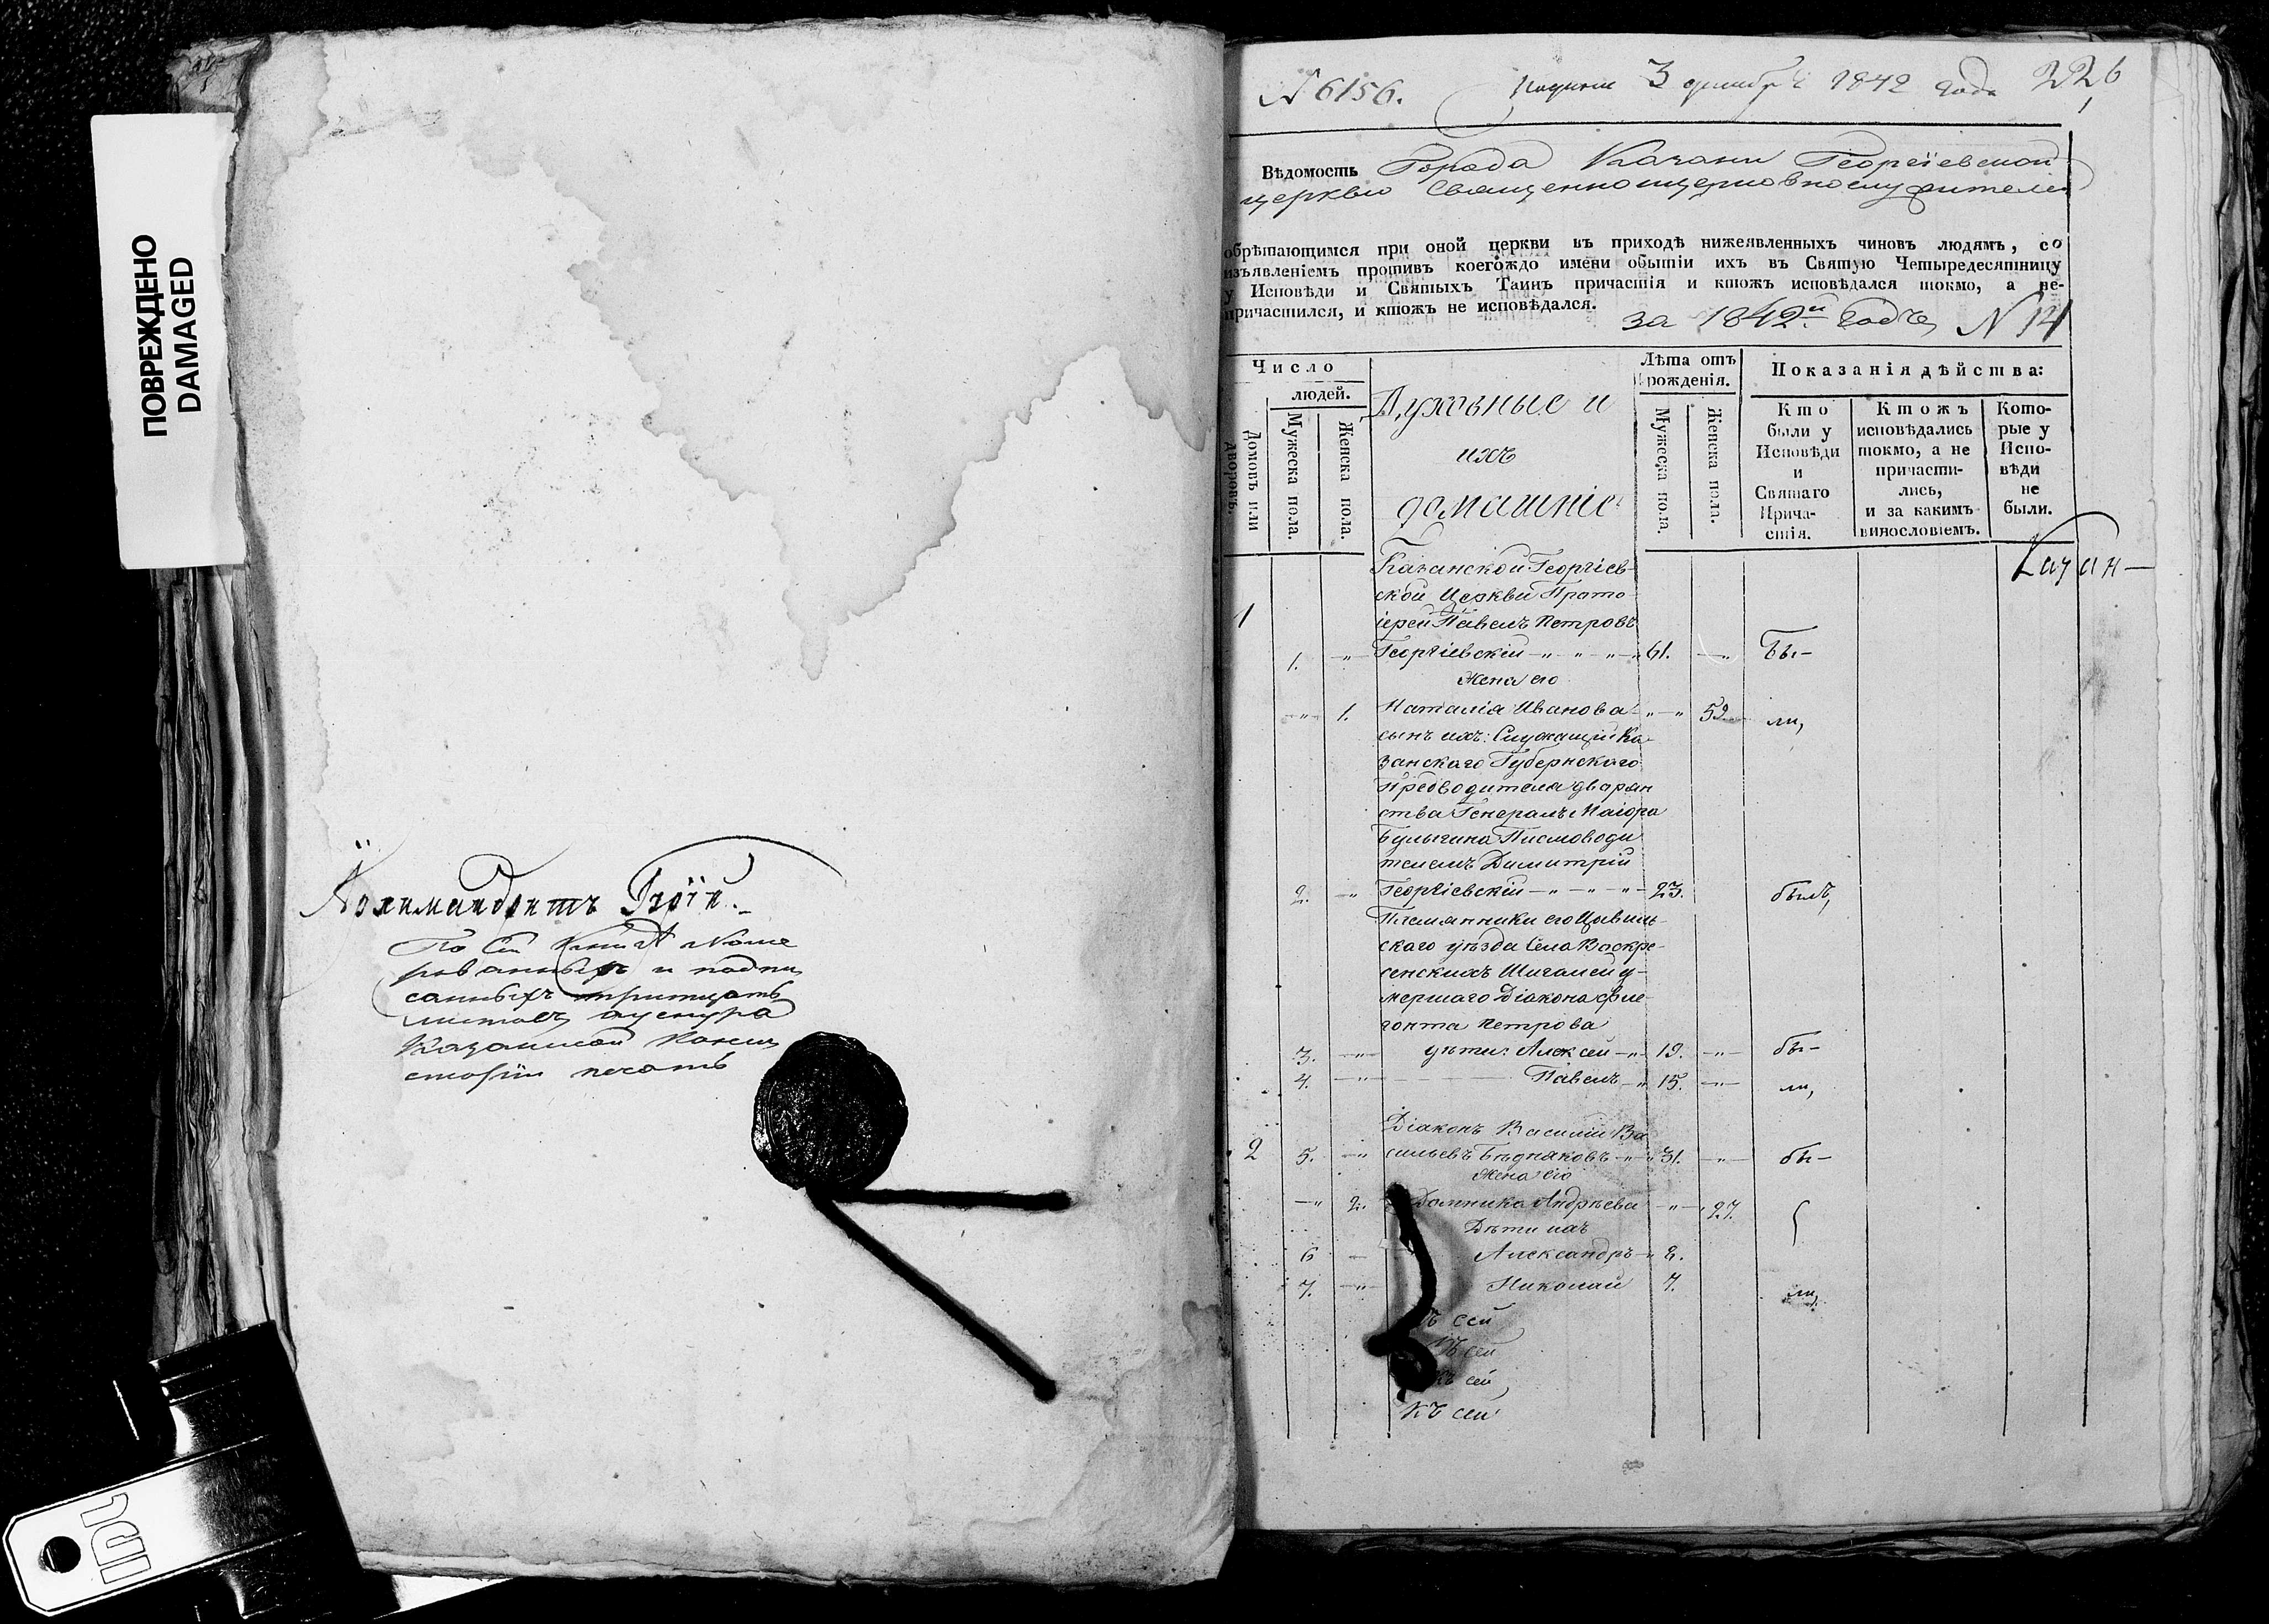 ПОВРЕЖДЕНО
DAMAGED
Архимандритъ Гаvріи.
По сей Книгѣ Номе
рованныхъ и подпи
санныхъ тритцать
листовъ
Казанской Конси
сторіи печать
№ 6156.
3 декабря 1842 года
226
Вѣдомость Города Казани Георгіевской
церкви Священноцерковнослужителей
обрѣтающимся при оной церкви въ приходѣ нижеявленныхъ чиновъ людямъ, со
изъявленіемъ противъ коегождо имени обытіи ихъ въ Святую Четыредесятницу
у Исповѣди и Святыхъ Таинъ причастія и ктожъ исповѣдался токмо, а не-
причастился, и ктожъ не исповѣдался.
за 1842й годъ № 14
Число
людей.
Домовъ или дворовъ.
Мужеска пола.
Женска пола.
Духовные и
ихъ
домашніе
Лѣта отъ
рожденія.
Мужеска пола.
Женска пола.
Показанія дѣйства:
Кто
были у
Исповѣди
и
Святаго
Прича-
стія.
Ктожъ
исповѣдались
токмо, а не
причасти-
лись,
и за какимъ
винословіемъ.
Кото-
рые у
Испо-
вѣди
не
были.
Казанской Георгіев-
ской Церкви Прото
1 іерей Павелъ Петровъ
1. -"- Георгіевскій -"- " -"- 61. -"- Бы-
Жена его
-"- 1. Наталія Иванова -"-" 52 ли,
сынъ ихъ: Служащій Ка
занскаго Губернскаго
Предводителя дворян
ства Генералъ Маіора
Булыгина Писмоводи
телемъ Димитрій
2. -"- Георгіевскій -"-"-"- 23. былъ,
Племянники его Цивиль-
скаго уѣзда села Воскре-
сенскихъ Шигалей у-
мершаго Діакона Фле-
гонта Петрова
3. -"- дѣти: Алексей -"- 19. -"- бы-
4. -"- Павелъ -"- 15. -"- ли,
Діаконъ Василій Ва
2 5. -"- сильевъ Бѣдняковъ -"- 31. -"- бы-
Жена его
-"- 2. Домника Андрѣева -"- 27.
Дѣти ихъ
6 - Александръ -"- 8.
7. -"- Николай 7. ли,
ъ сей
къ сей
къ сей,
къ сей
Казан-